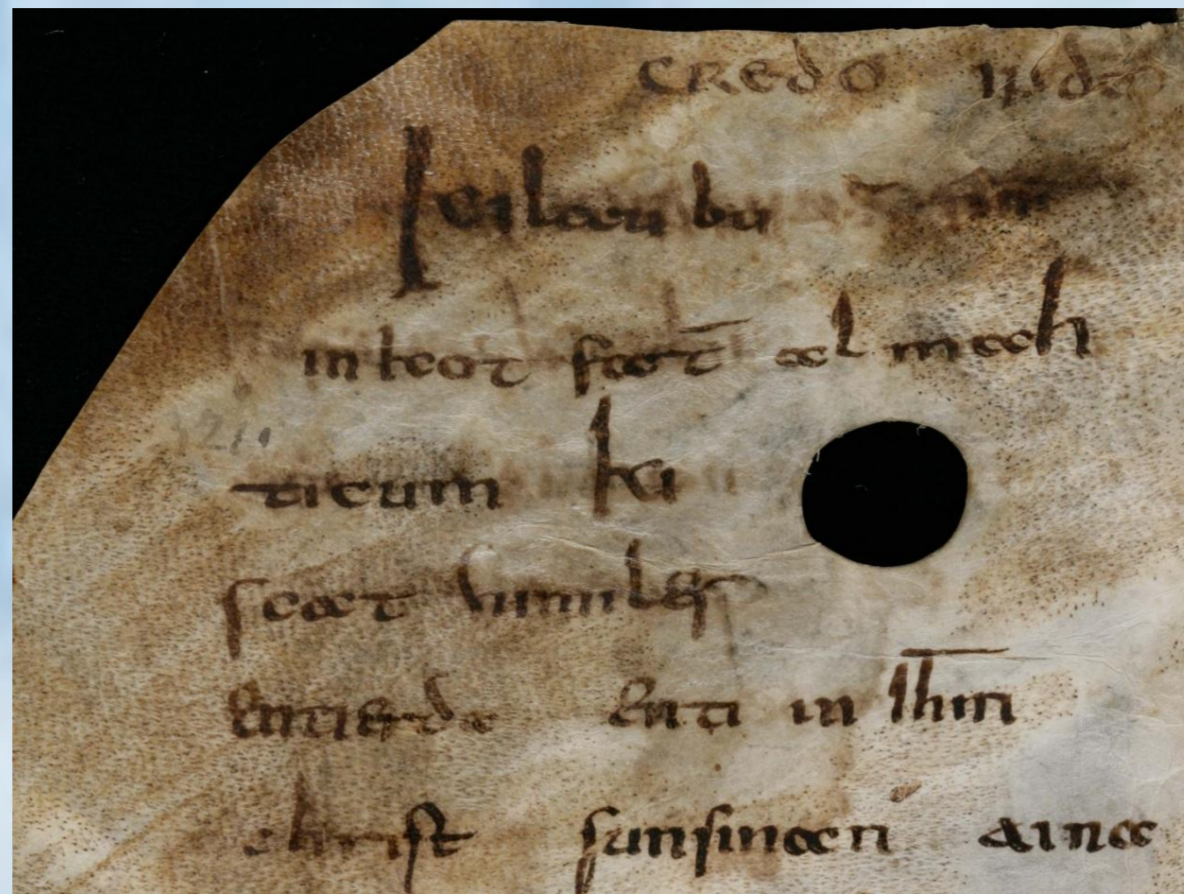 CREDO IN DŌ
Kilaubu
in kot fat̄ almah
ticum ki
scaft himiles
enti erda enti in ihm̄
christ sun sinan aina